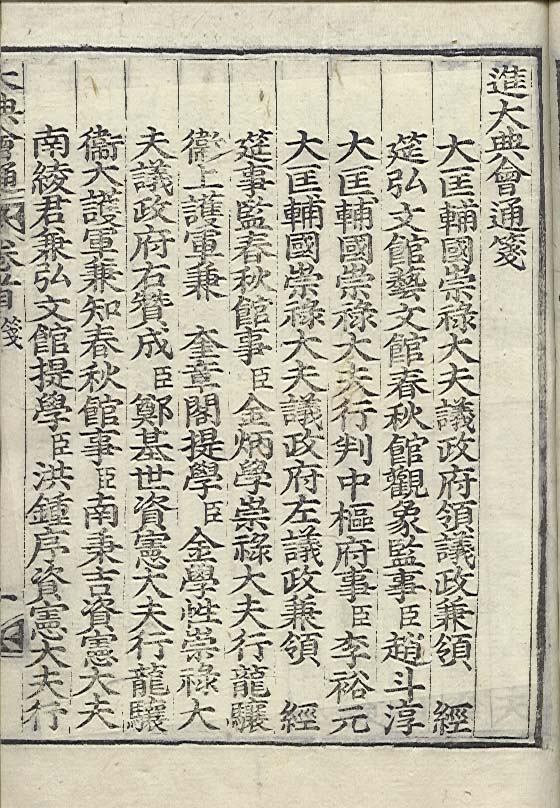 進大典會通箋
大匡輔國崇祿大夫議政府領議政兼領 經
筵弘文館藝文館春秋館觀象監事臣趙斗淳
大匡輔國崇祿大夫行判中樞府事臣李裕元
大匡輔國崇祿大夫議政府左議政兼領 經
筵事監春秋館事臣金炳學崇祿大夫行龍驤
衛上護軍兼 奎章閣提學臣金學性崇祿大
夫議政府右贊成臣鄭基世資憲大夫行龍驤
衛大護軍兼知春秋館事臣南秉吉資憲大夫
南綾君兼弘文館提學臣洪鍾序資憲大夫行
大典會通 卷首 箋 一